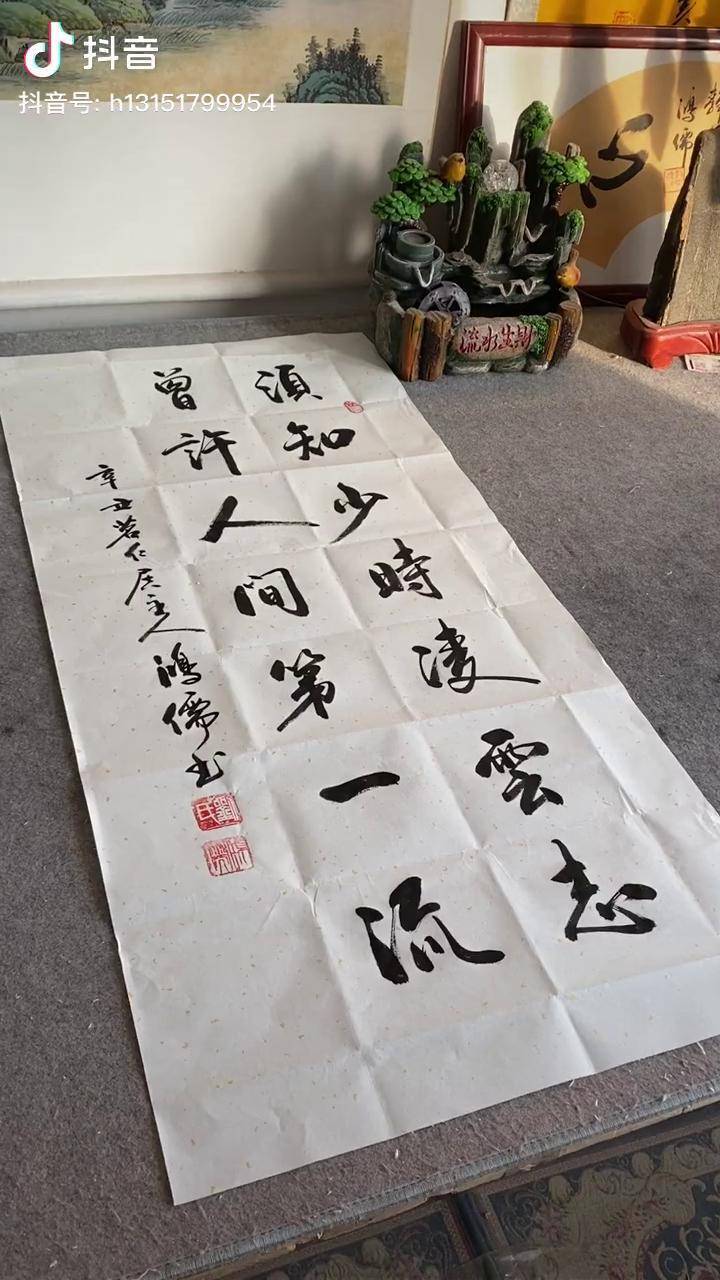 抖音
抖音号: h13151799954
須知少時凌雲志
曾許人間第一流
辛丑若仁居主人鴻儒书
流水生財
心
鴻儒